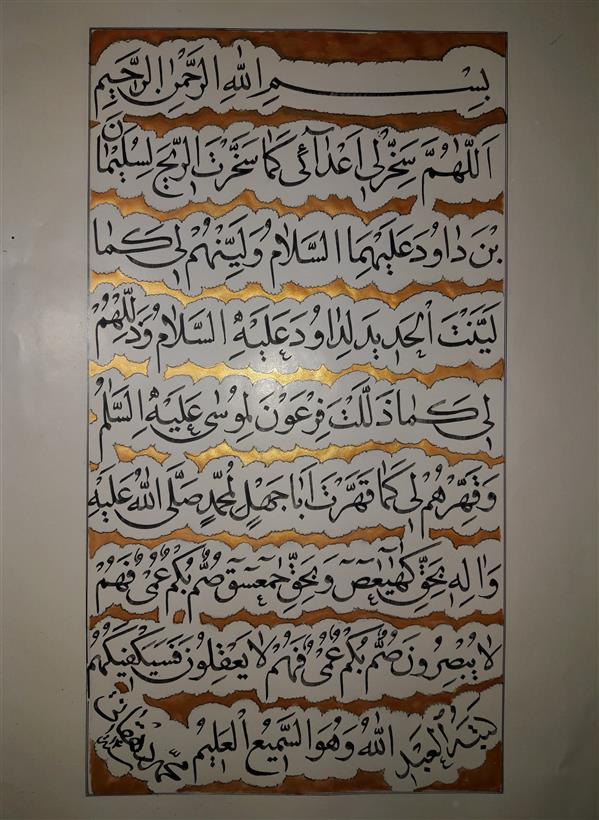 بِسْمِ اللهِ الرَّحْمٰنِ الرَّحِيْمِ
اَللّٰهُمَّ سَخِّرْلِي اَعْدَآئِي كَمَا سَخَّرْتَ الرِّيْحَ لِسُلَيْمَانَ
بْنَ دٰاوُدَ عَلَيْهِمَا السَّلَامُ وَلَيِّنْهُمْ لِي كَمَا
لَيَّنْتَ الْحَدِيدَ لِدٰاوُدَ عَلَيْهِ السَّلَامُ وَذَلِّلْهُمْ
لِي كَمَا ذَلَّلْتَ فِرْعَوْنَ لِمُوسٰى عَلَيْهِ السَّلٰمُ
وَقَهِّرْهُمْ لِي كَمَا قَهَّرْتَ اَبَا جَهْلٍ لِمُحَمَّدٍ صَلَّى اللهُ عَلَيْهِ
وَاٰلِهِ بِحَقِّ كٓهٰيٰعٓصٓ وَبِحَقِّ حٰمٓعٓسٓقٓ صُمٌّ بُكْمٌ عُمْيٌ فَهُمْ
لَا يُبْصِرُونَ صُمٌّ بُكْمٌ عُمْيٌ فَهُمْ لَا يَعْقِلُونَ فَسَيَكْفِيكَهُمُ
اللهُ وَهُوَ السَّمِيْعُ الْعَلِيْمُ
كَتَبَهُ الْعَبْدُ
محمد